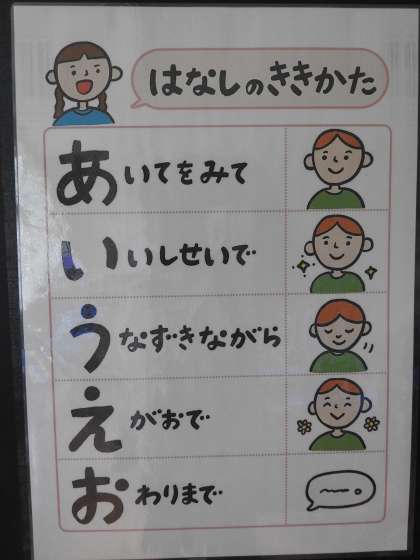 はなしのききかた
あいてをみて
いいしせいで
うなずきながら
えがおで
おわりまで